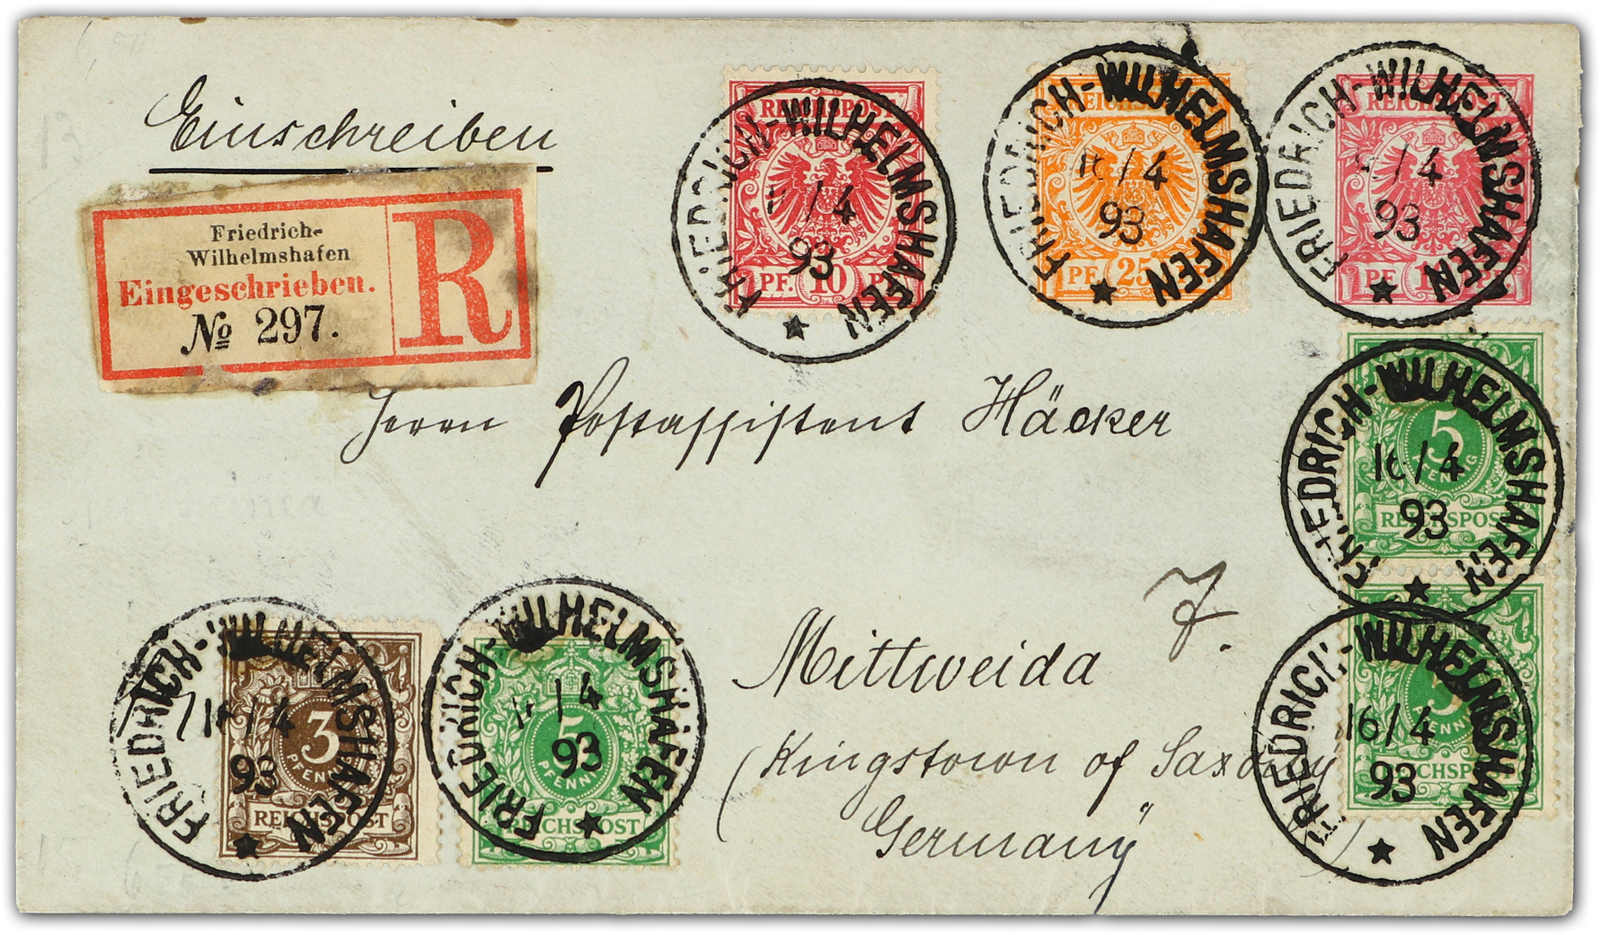 Einschreiben
Friedrich-
Wilhelmshafen
Eingeschrieben.
№ 297.
R
REICHSPOST
PF. 10 PF.
FRIEDRICH-WILHELMSHAFEN
/4
93
REICHSPOST
PF. 25 PF.
FRIEDRICH-WILHELMSHAFEN
16/4
93
REICHSPOST
PF 10 PF
FRIEDRICH-WILHELMSHAFEN
/4
93
Herrn Postassistent Häcker
5
PFENNIG
REICHSPOST
FRIEDRICH-WILHELMSHAFEN
16/4
93
Mittweida
(Kingstown of
Germany"
5
PFENNIG
REICHSPOST
FRIEDRICH-WILHELMSHAFEN
16/4
93
3
PFENNIG
REICHSPOST
FRIEDRICH-WILHELMSHAFEN
16/4
93
5
PFENNIG
REICHSPOST
FRIEDRICH-WILHELMSHAFEN
/4
93